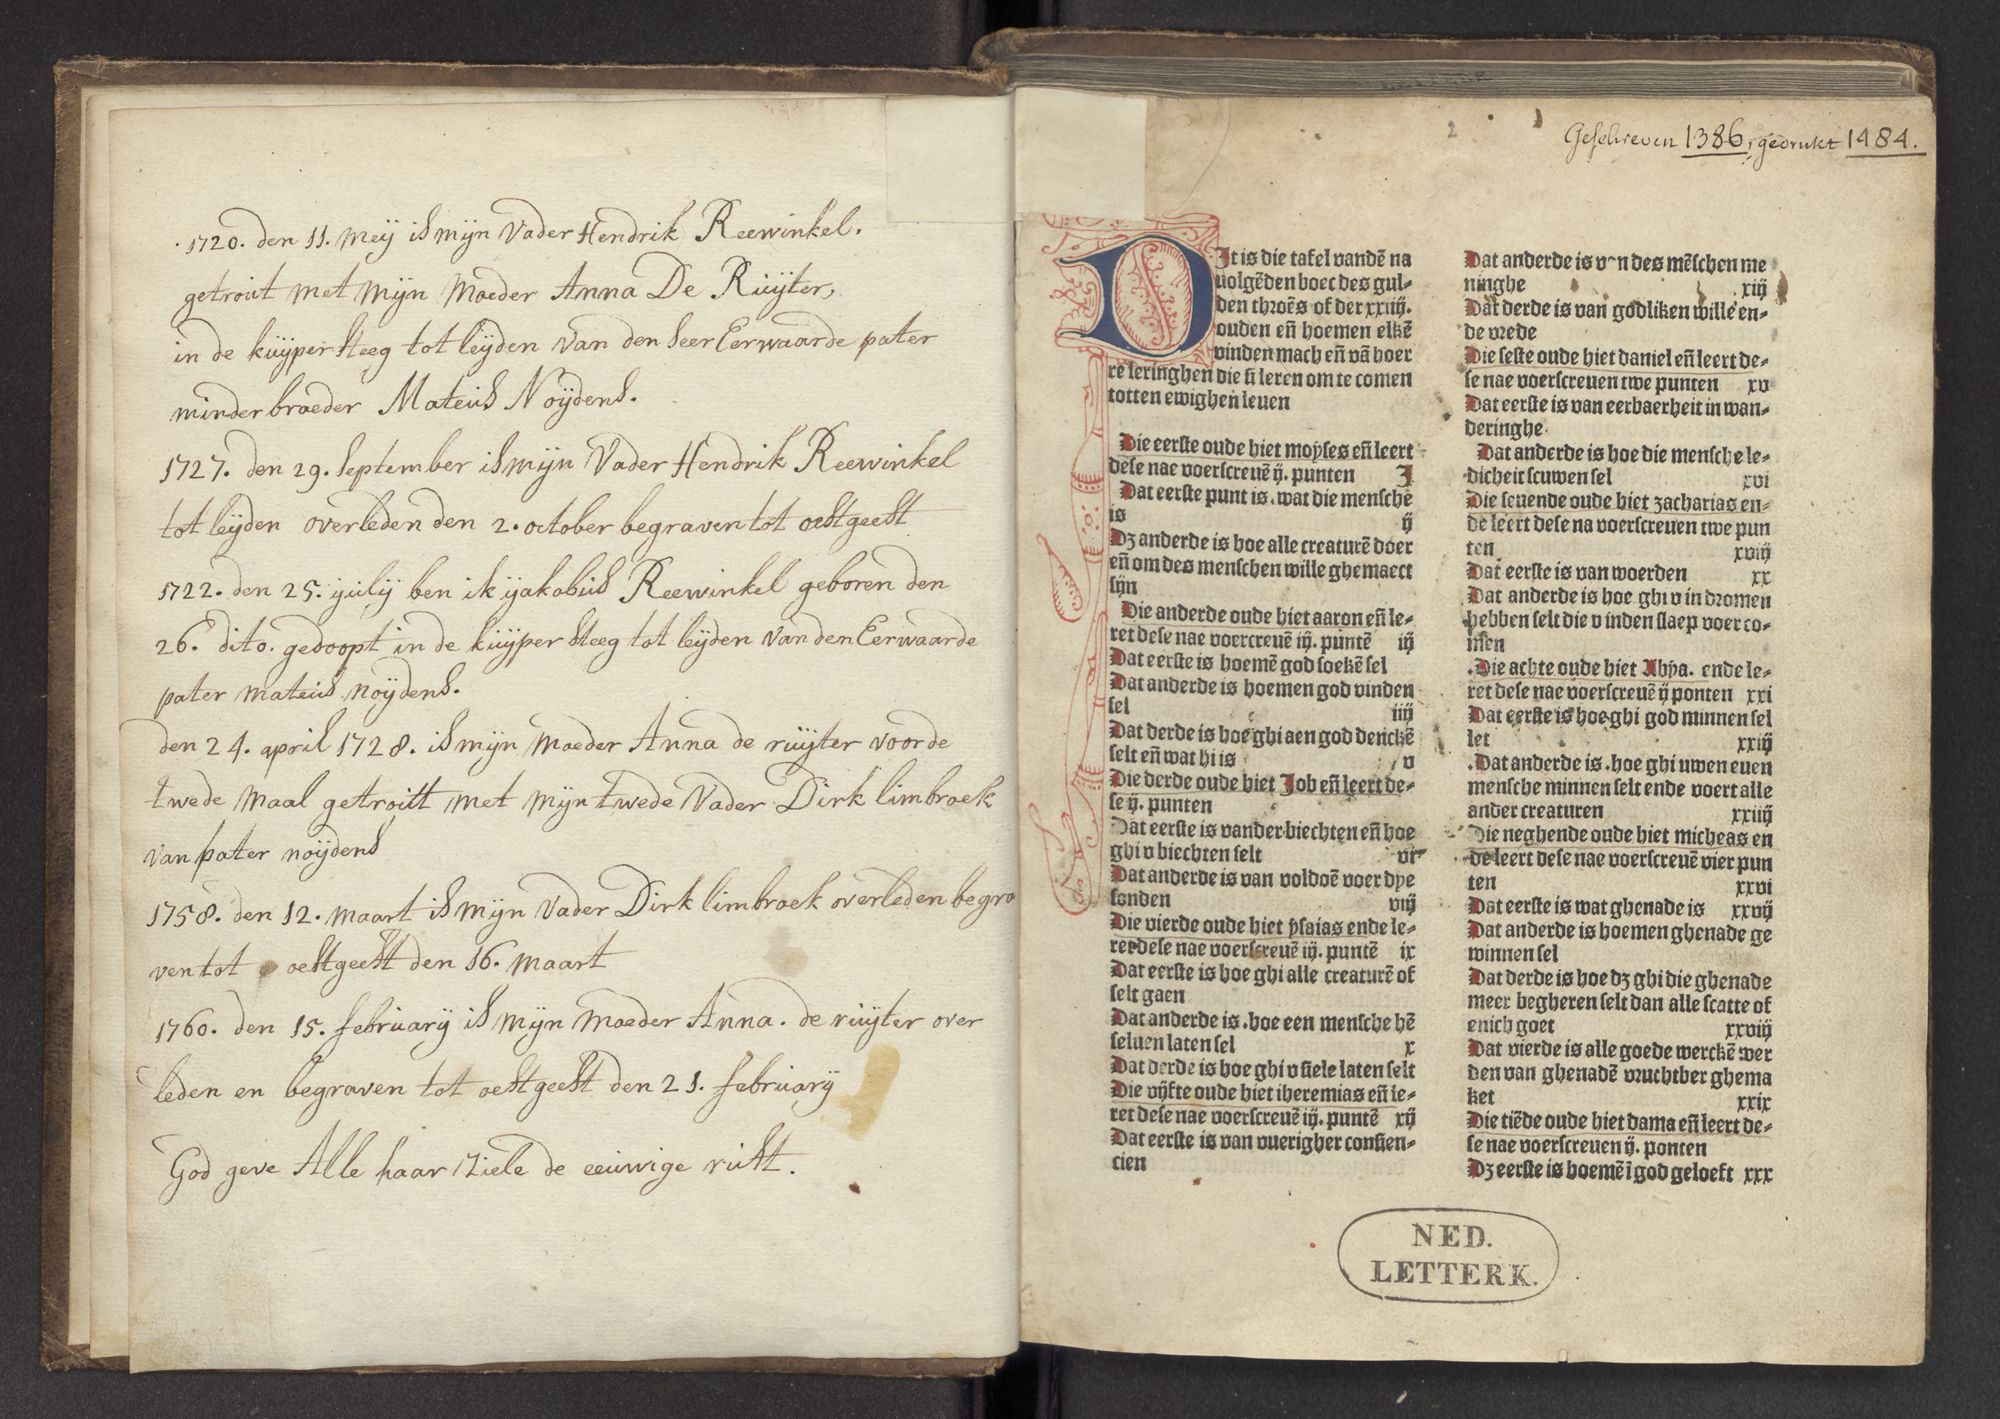 1720. den 11. Meÿ is mÿn Vader Hendrik Reewinkel.
getrout met mÿn Moeder Anna De Ruÿter,
in de kuÿpersteeg tot leÿden van den seer Eerwaarde pater
minderbroeder Mateus Noÿdens.
1727. den 29. September is mÿn Vader Hendrik Reewinkel
tot leÿden overleden den 2. october begraven tot oestgeest
1722. den 25. ÿulÿ ben ik ÿakobus Reewinkel geboren den
26. dito. gedoopt in de kuÿpersteeg tot leÿden van den Eerwaarde
pater mateus noÿdens.
den 24. april 1728. is mÿn Moeder Anna de ruÿter voor de
twede Maal getroutt met mÿn twede Vader Dirk limbroek
van pater noÿdens
1758. den 12. maart is mÿn Vader Dirk limbroek overleden begra
ven tot oestgeest den 16. maart
1760. den 15. februarÿ is mÿn Moeder Anna. de ruÿter over
leden en begraven tot oestgeest den 21. februarÿ
God geve Alle haar Ziele de eeuwige rust.
2
Geschreven 1386, gedrukt 1484.
DIt is die tafel vandē na
uolgēden boec des gul⸗
den throēs of der xxiiij.
ouden en̄ hoemen elkē
vinden mach en̄ vā hoer
re leringhen die si leren om te comen
totten ewighen leuen
Die eerste oude hiet moyses en̄ leert
dese nae voerscreuē ij. punten I
Dat eerste punt is. wat die mensche
is ij
Dꝫ anderde is hoe alle creaturē doer
en̄ om des menschen wille ghemaect
sijn
Die anderde oude hiet aaron en̄ le⸗
ret dese nae voercreuē iij. puntē iij
Dat eerste is hoemē god soekē sel
Dat anderde is hoemen god vinden
sel iiij
Dat derde is hoe ghi aen god denckē
selt en̄ wat hi is v
Die derde oude hiet Job en̄ leert de⸗
se ij. punten
Dat eerste is vander biechten en̄ hoe
ghi v biechten selt vi
Dat anderde is van voldoē voer dye
sonden viij
Die vierde oude hiet ysaias ende le⸗
ret dese nae voerscreuē iij. puntē ix
Dat eerste is hoe ghi alle creaturē of
selt gaen
Dat anderde is. hoe een mensche hē
seluen laten sel x
Dat derde is hoe ghi v siele laten selt
Die vijfte oude hiet iheremias en̄ le⸗
ret dese nae voerscreuē iij. puntē xij
Dat eerste is van vuerigher consien⸗
cien
Dat anderde is van des mēschen me
ninghe xiij
Dat derde is van godliken wille en⸗
de vrede
Die seste oude hiet daniel en̄ leert de⸗
se nae voerscreuen twe punten xv
Dat eerste is van eerbaerheit in wan⸗
deringhe
Dat anderde is hoe die mensche le⸗
dicheit scuwen sel xvi
Die seuende oude hiet zacharias en⸗
de leert dese na voerscreuen twe pun
ten xviij
Dat eerste is van woerden xx
Dat anderde is hoe ghi v in dromen
hebben selt die v inden slaep voer co⸗
men
.Die achte oude hiet Abya. ende le⸗
ret dese nae voerscreuē ij ponten xxi
Dat eerste is hoe ghi god minnen sel
let xxiij
.Dat anderde is. hoe ghi uwen euen
mensche minnen selt ende voert alle
ander creaturen xxiiij
Die neghende oude hiet micheas en
de leert dese nae voerscreuē vier pun
ten xxvi
Dat eerste is wat ghenade is xxvij
Dat anderde is hoemen ghenade ge
winnen sel
Dat derde is hoe dꝫ ghi die ghenade
meer begheren selt dan alle scatte of
enich goet xxviij
Dat vierde is alle goede werckē wer
den van ghenadē vruchtber ghema
ket xxix
Die tiēde oude hiet dama en̄ leert de⸗
se nae voerscreuen ij. ponten
Dꝫ eerste is hoemē ī god geloeft xxx
NED.
LETTERK.